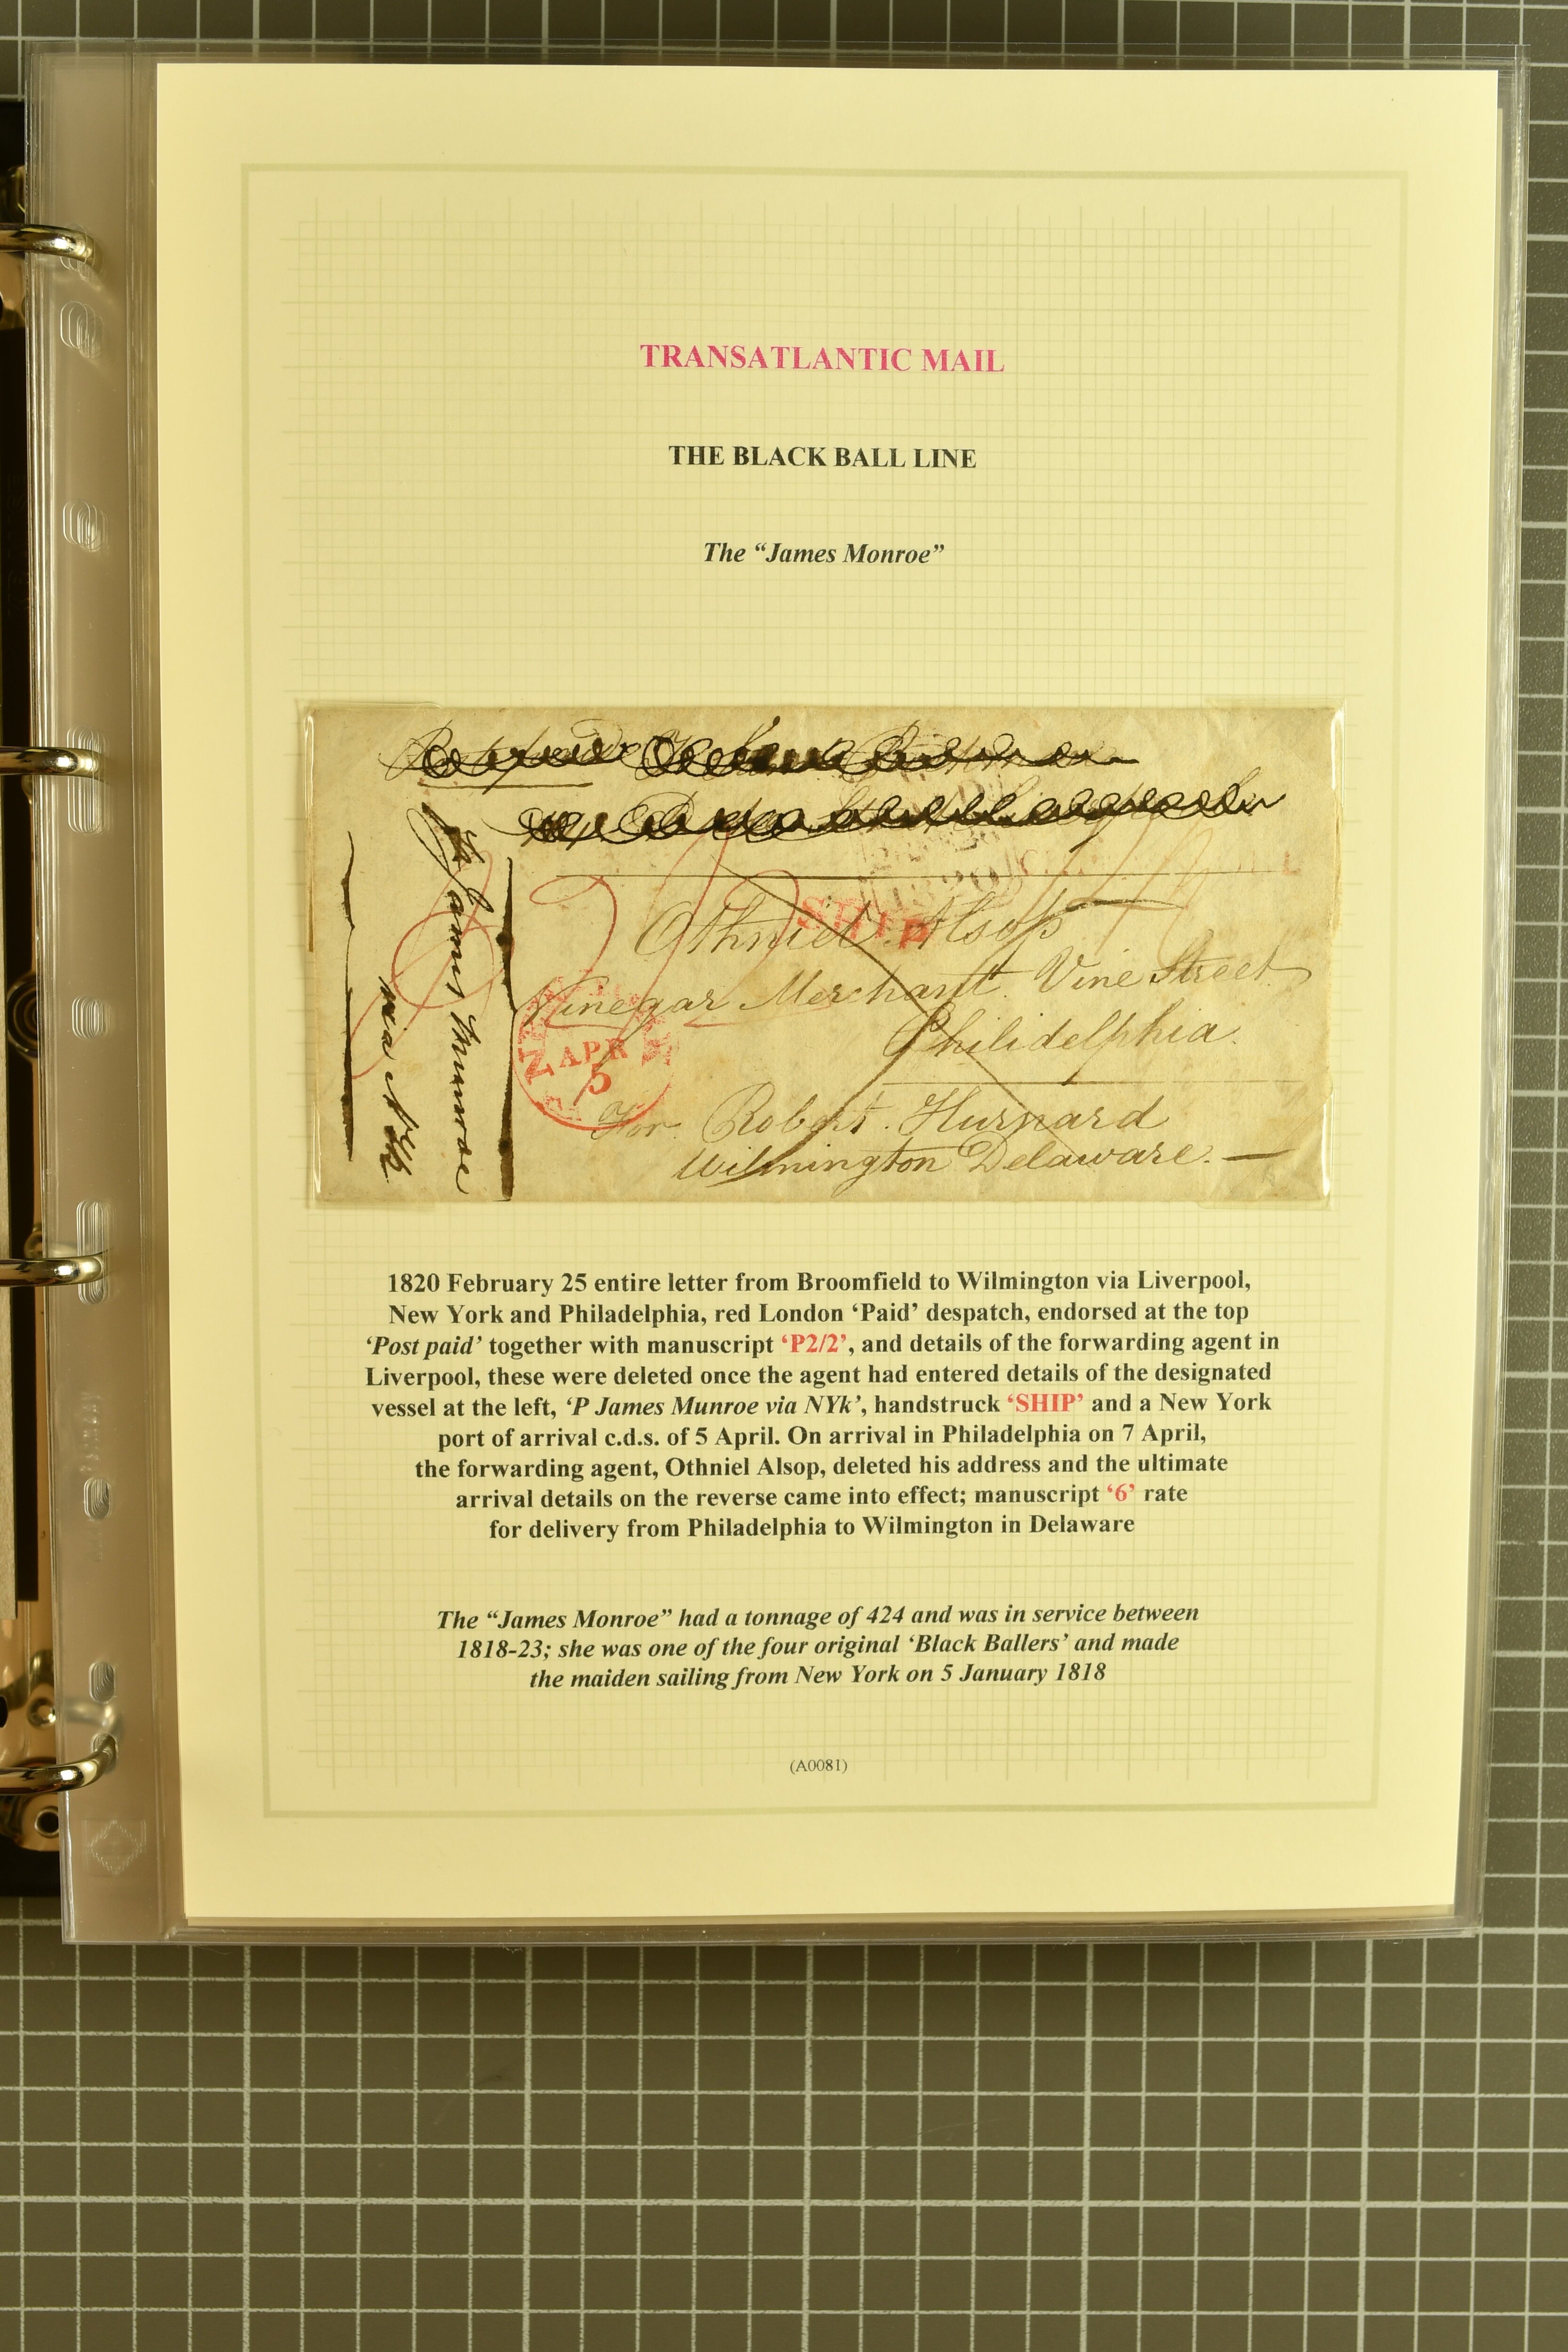 TRANSATLANTIC MAIL
THE BLACK BALL LINE
The “James Monroe”
SHIP
Othniel Alsop
Vinegar Merchant Vine Street
Philidelphia.
For Robert Hurnard
Wilmington Delaware. —
APR
5
P James Munroe
via NYk
1820 February 25 entire letter from Broomfield to Wilmington via Liverpool,
New York and Philadelphia, red London ‘Paid’ despatch, endorsed at the top
‘Post paid’ together with manuscript ‘P2/2’, and details of the forwarding agent in
Liverpool, these were deleted once the agent had entered details of the designated
vessel at the left, ‘P James Munroe via NYk’, handstruck ‘SHIP’ and a New York
port of arrival c.d.s. of 5 April. On arrival in Philadelphia on 7 April,
the forwarding agent, Othniel Alsop, deleted his address and the ultimate
arrival details on the reverse came into effect; manuscript ‘6’ rate
for delivery from Philadelphia to Wilmington in Delaware
The “James Monroe” had a tonnage of 424 and was in service between
1818-23; she was one of the four original ‘Black Ballers’ and made
the maiden sailing from New York on 5 January 1818
(A0081)